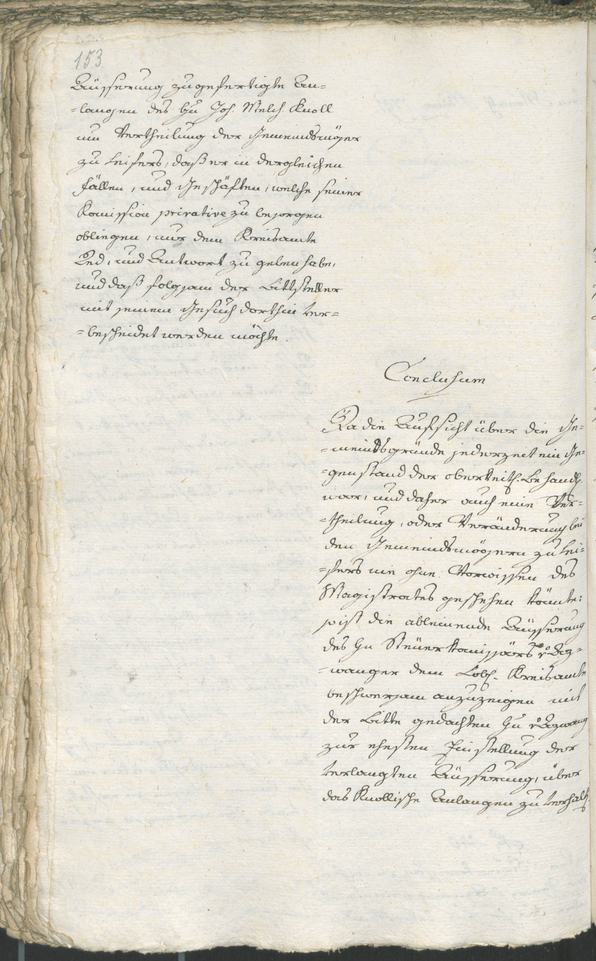 153
Äusserung zugefertigte An-
-langen des Hn Joh. Melch Knoll
um Vertheilung der Gemeindsmöser
zu Leifers, daß er in dergleichen
Fällen, und Geschäften, welche seiner
Komission privative zu besorgen
obliegen, nur dem Kreisamte
Red, und Antwort zu geben habe,
und daß folgsam der Bittsteller
mit seinem Gesuch dorthin ver-
-bescheidet werden möchte.
Conclusum
Da die Aufsicht über die Ge-
-meindsgründe jederzeit ein Ge-
-genstand der obrkeitl. Behandl.
war, und daher auch eine Ver-
-theilung, oder Veränderung bei
den Gemeindsmösern zu Lei-
-fers nie ohne Vorwissen des
Magistrates geschehen könnte:
so ist die ableinende Äusserung
des Hn Steuerkomissärs v
-wanger dem Löbl. Kreisamte
beschwersam anzuzeigen mit
der Bitte gedachten Hn
zur ehesten Einstellung der
verlangten Äusserung, über
das Knollische Anlangen zu verhalt.